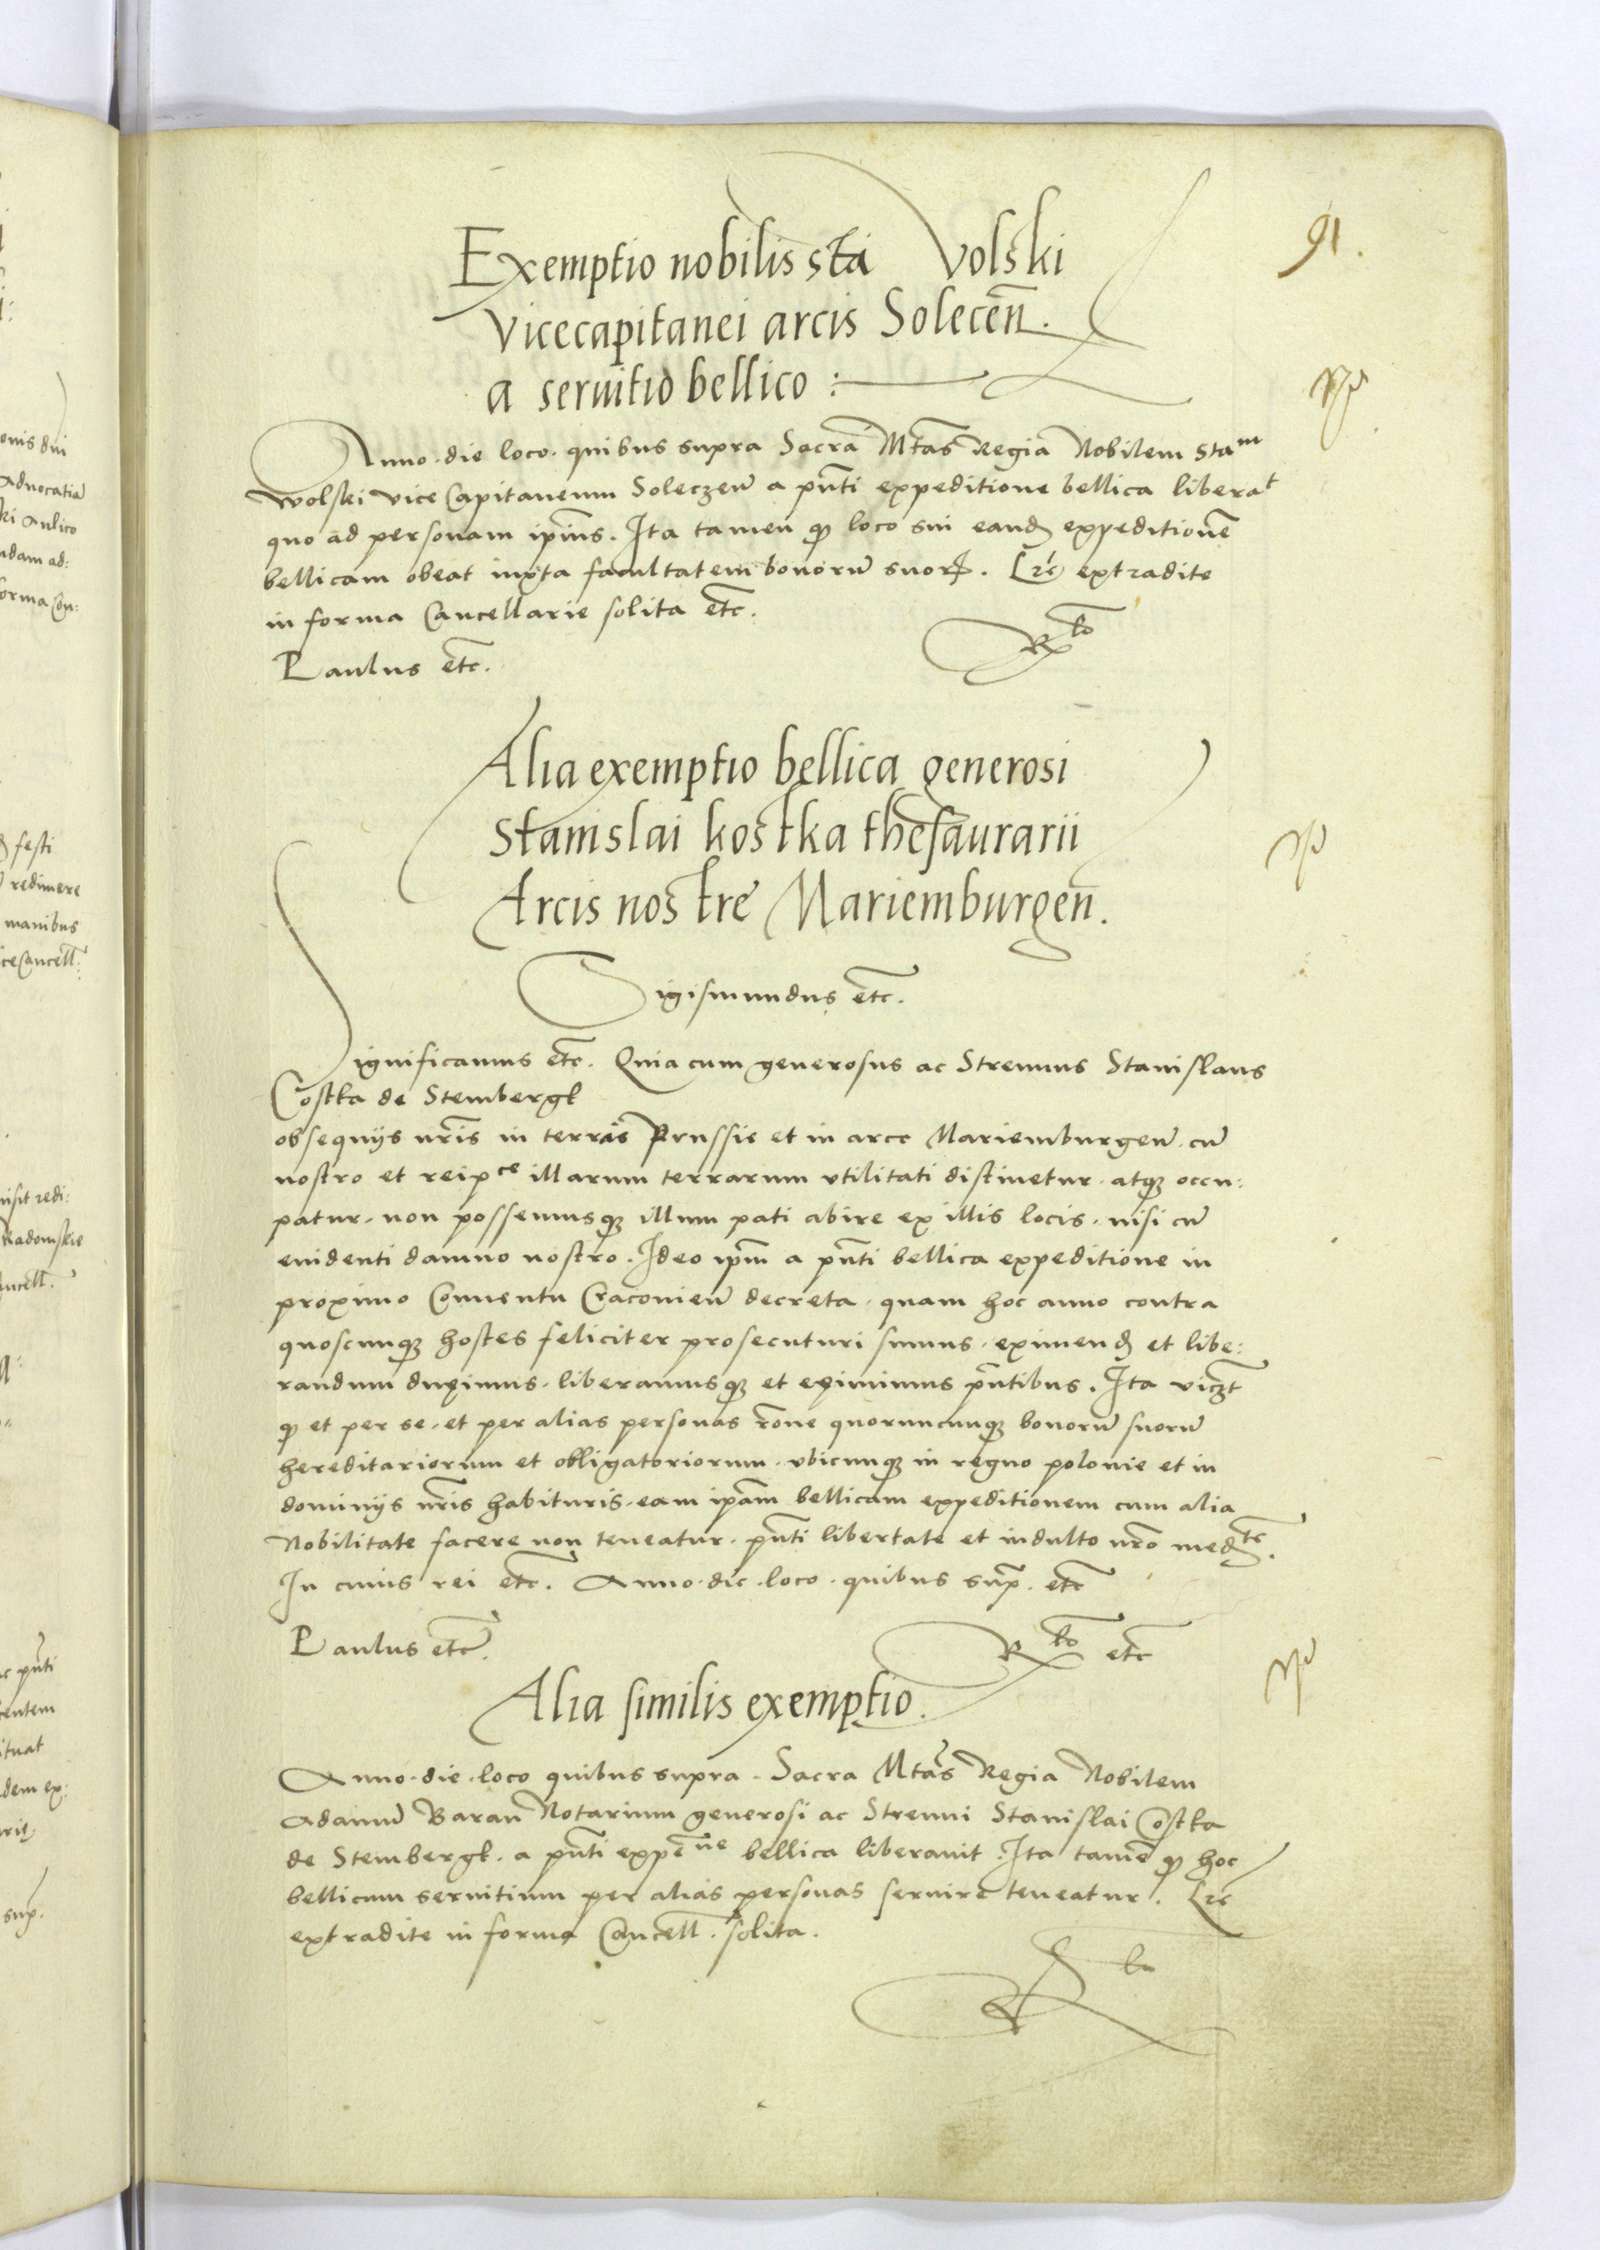 91.
Exemptio nobilis sta Volski
Vicecapitanei arcis Solecen̄.
a seruitio bellico :
Anno. die loco. quibus supra Sacra Mtas Regia Nobilem Staᵐ
Wolski vice Capitaneum Soleczen̄ a pn̄ti expeditione bellica liberaᵗ
quo ad personam ipius. Ita tamen ꝙ loco sui eandꝫ expeditionē
bellicam obeat iuxta facultatem bonorū suorꝝ. Lre extradite
in forma Cancellarie solita etc.
Paulus etc. Rᵗᵒ
Alia exemptio bellica generosi
Stanislai kostka thesaurarii
Arcis nostre Mariemburgen̄.
Sigismundus etc.
Significamus etc. Quia cum generosus ac Strenuus Stanislaus
Costka de Stembergk
obsequijs nr̄is in terris Prussie et in arce Mariemburgen̄ cū
nostro et reipᶜᵉ illarum terrarum vtilitati distinetur. atqꝫ occu:
patur. non possemusqꝫ illum pati abire ex illis locis. nisi cū
euidenti damno nostro. Ideo ipm̄ a pn̄ti bellica expeditione in
proximo Conuentu Cracouien̄ decreta. quam hoc anno contra
quoscunqꝫ hostes feliciter prosecuturi sumus. eximendꝫ et libe:
randum duximus. liberamusqꝫ et eximimus pn̄tibus. Ita viczt
ꝙ et per se. et per alias personas rōne quoruncunqꝫ bonorū suorū
hereditariorum et obligatoriorum. vbicunqꝫ in regno polonie et in
dominijs nr̄is habituris. eam ipam̄ bellicam expeditionem cum alia
Nobilitate facere non teneatur. pn̄ti libertate et indulto nr̄o medᵗᵉ.
In cuius rei etc. Anno. die. loco. quibus sup̄. etc
Paulus etc. Rᵗᵒ etc
Alia similis exemptio.
Anno. die. loco quibus supra. Sacra Mtas Regia Nobilem
Adamū Baran Notarium generosi ac Strenui Stanislai Costka
de Stembergk. a pn̄ti expeⁿᵉ bellica liberauit. Ita tamē ꝙ hoc
bellicum seruitium per alias personas seruire teneatur. Lre
extradite in forma Cancell. solita.
Rᵗᵒ